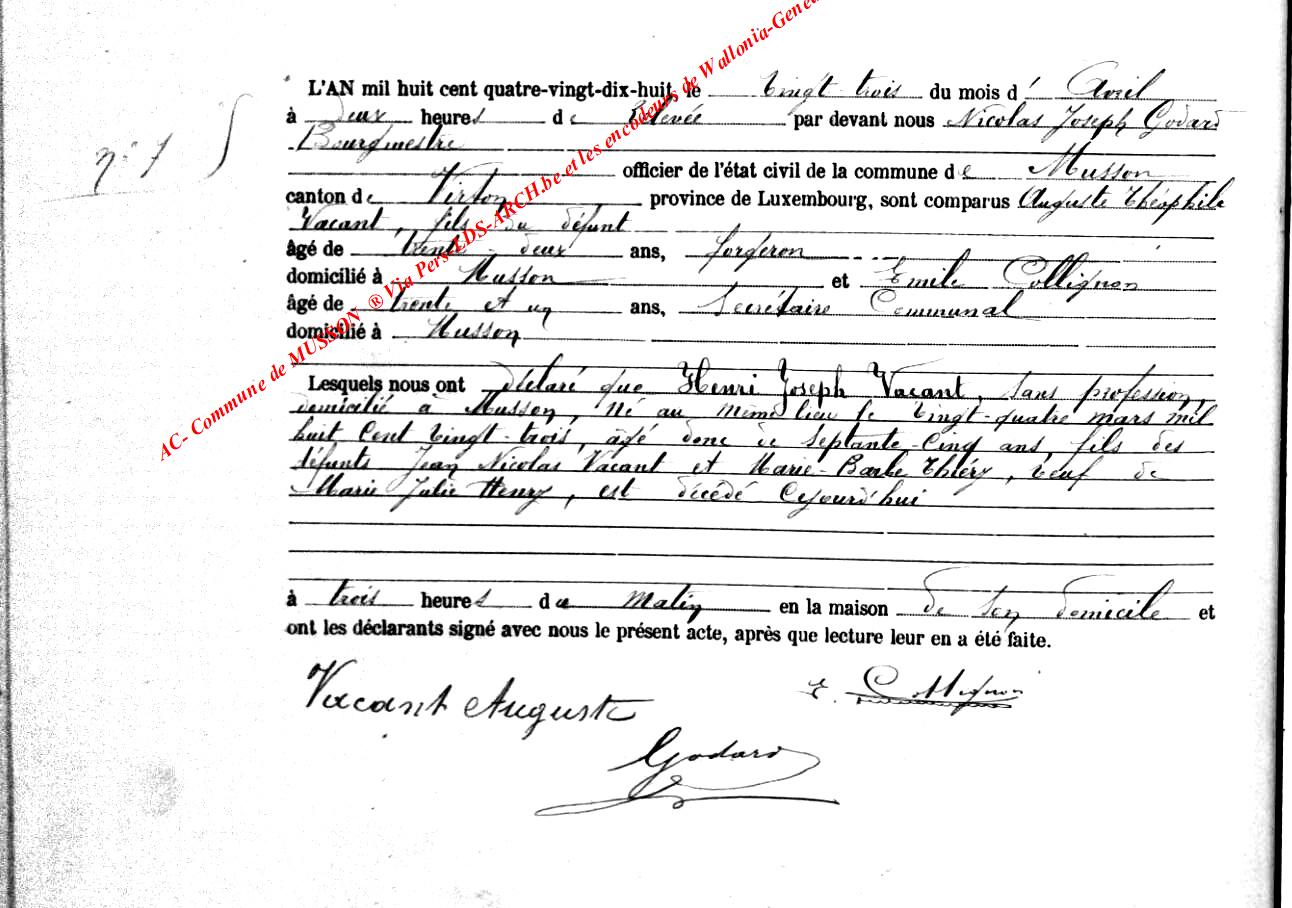 AC- Commune de MUSSON ® Via Pers-LDS-ARCH.be et les encodeurs de Wallonia-Genea
n° 7
L'AN mil huit cent quatre-vingt-dix-huit, le vingt trois du mois d' Avril
à deux heures de relevée par devant nous Nicolas Joseph Godard
Bourgmestre
officier de l'état civil de la commune de Musson
canton de Virton province de Luxembourg, sont comparus Auguste Théophile
Vacant, fils du défunt
âgé de trente-deux ans, forgeron
domicilié à Musson et Emile Collignon
âgé de trente et un ans, Secrétaire Communal
domicilié à Musson
Lesquels nous ont déclaré que Henri Joseph Vacant, sans profession,
domicilié à Musson, né au même lieu le vingt-quatre mars mil
huit cent vingt-trois, âgé donc de septante-cinq ans, fils des
défunts Jean Nicolas Vacant et Marie-Barbe Thiéry, veuf de
Marie Julie Henry, est décédé cejourd'hui
à trois heures du matin en la maison de son domicile et
ont les déclarants signé avec nous le présent acte, après que lecture leur en a été faite.
Vacant Auguste
E. Collignon
Godard